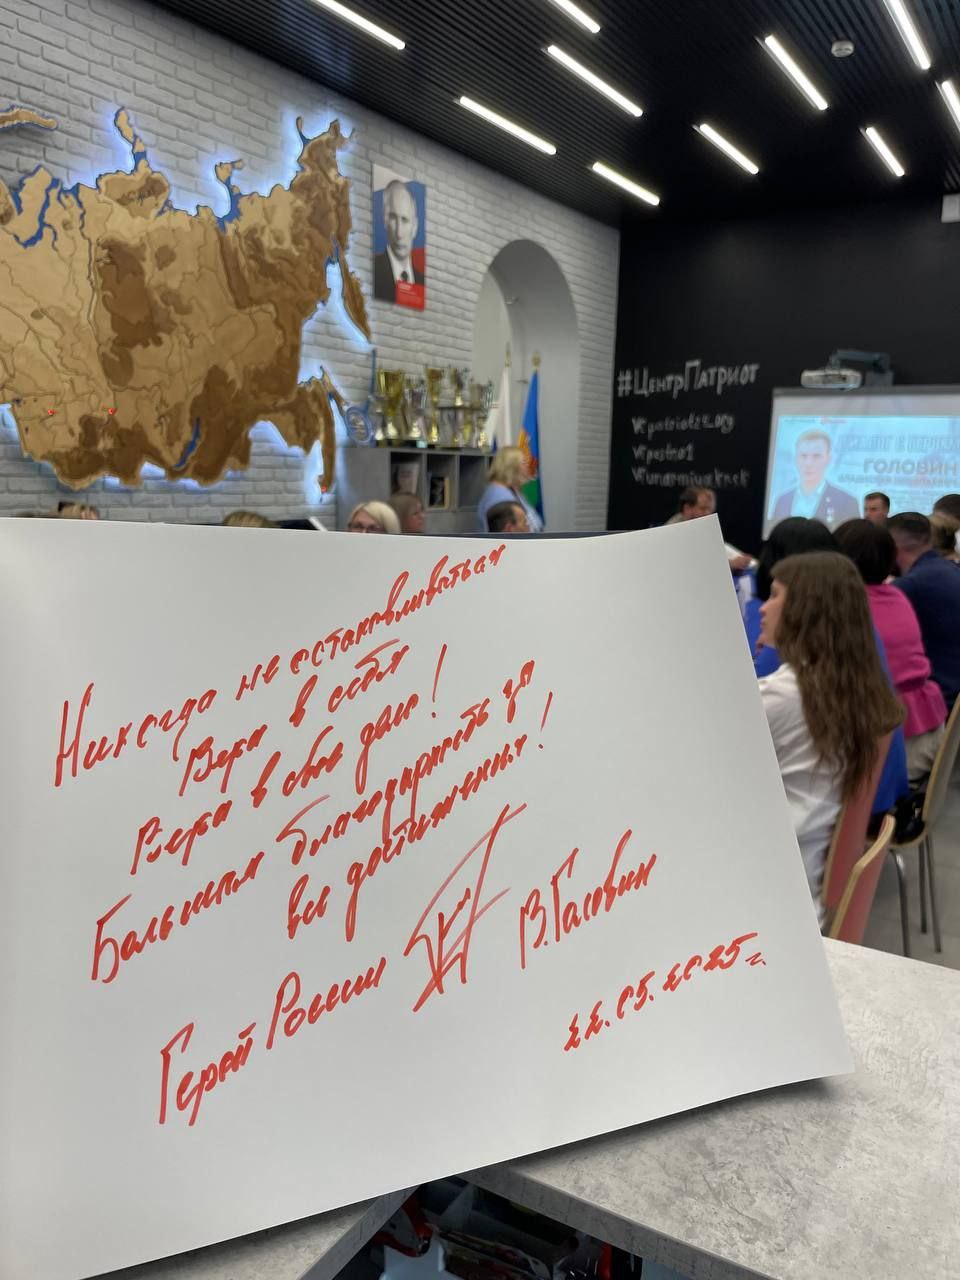 #ЦентрПатриот
ГОЛОВИН
Никогда не останавливаться
Вера в себя
Вера в свое дело!
Большая благодарность за
все достижения!
Герой России В. Головин
22.05.2025г.